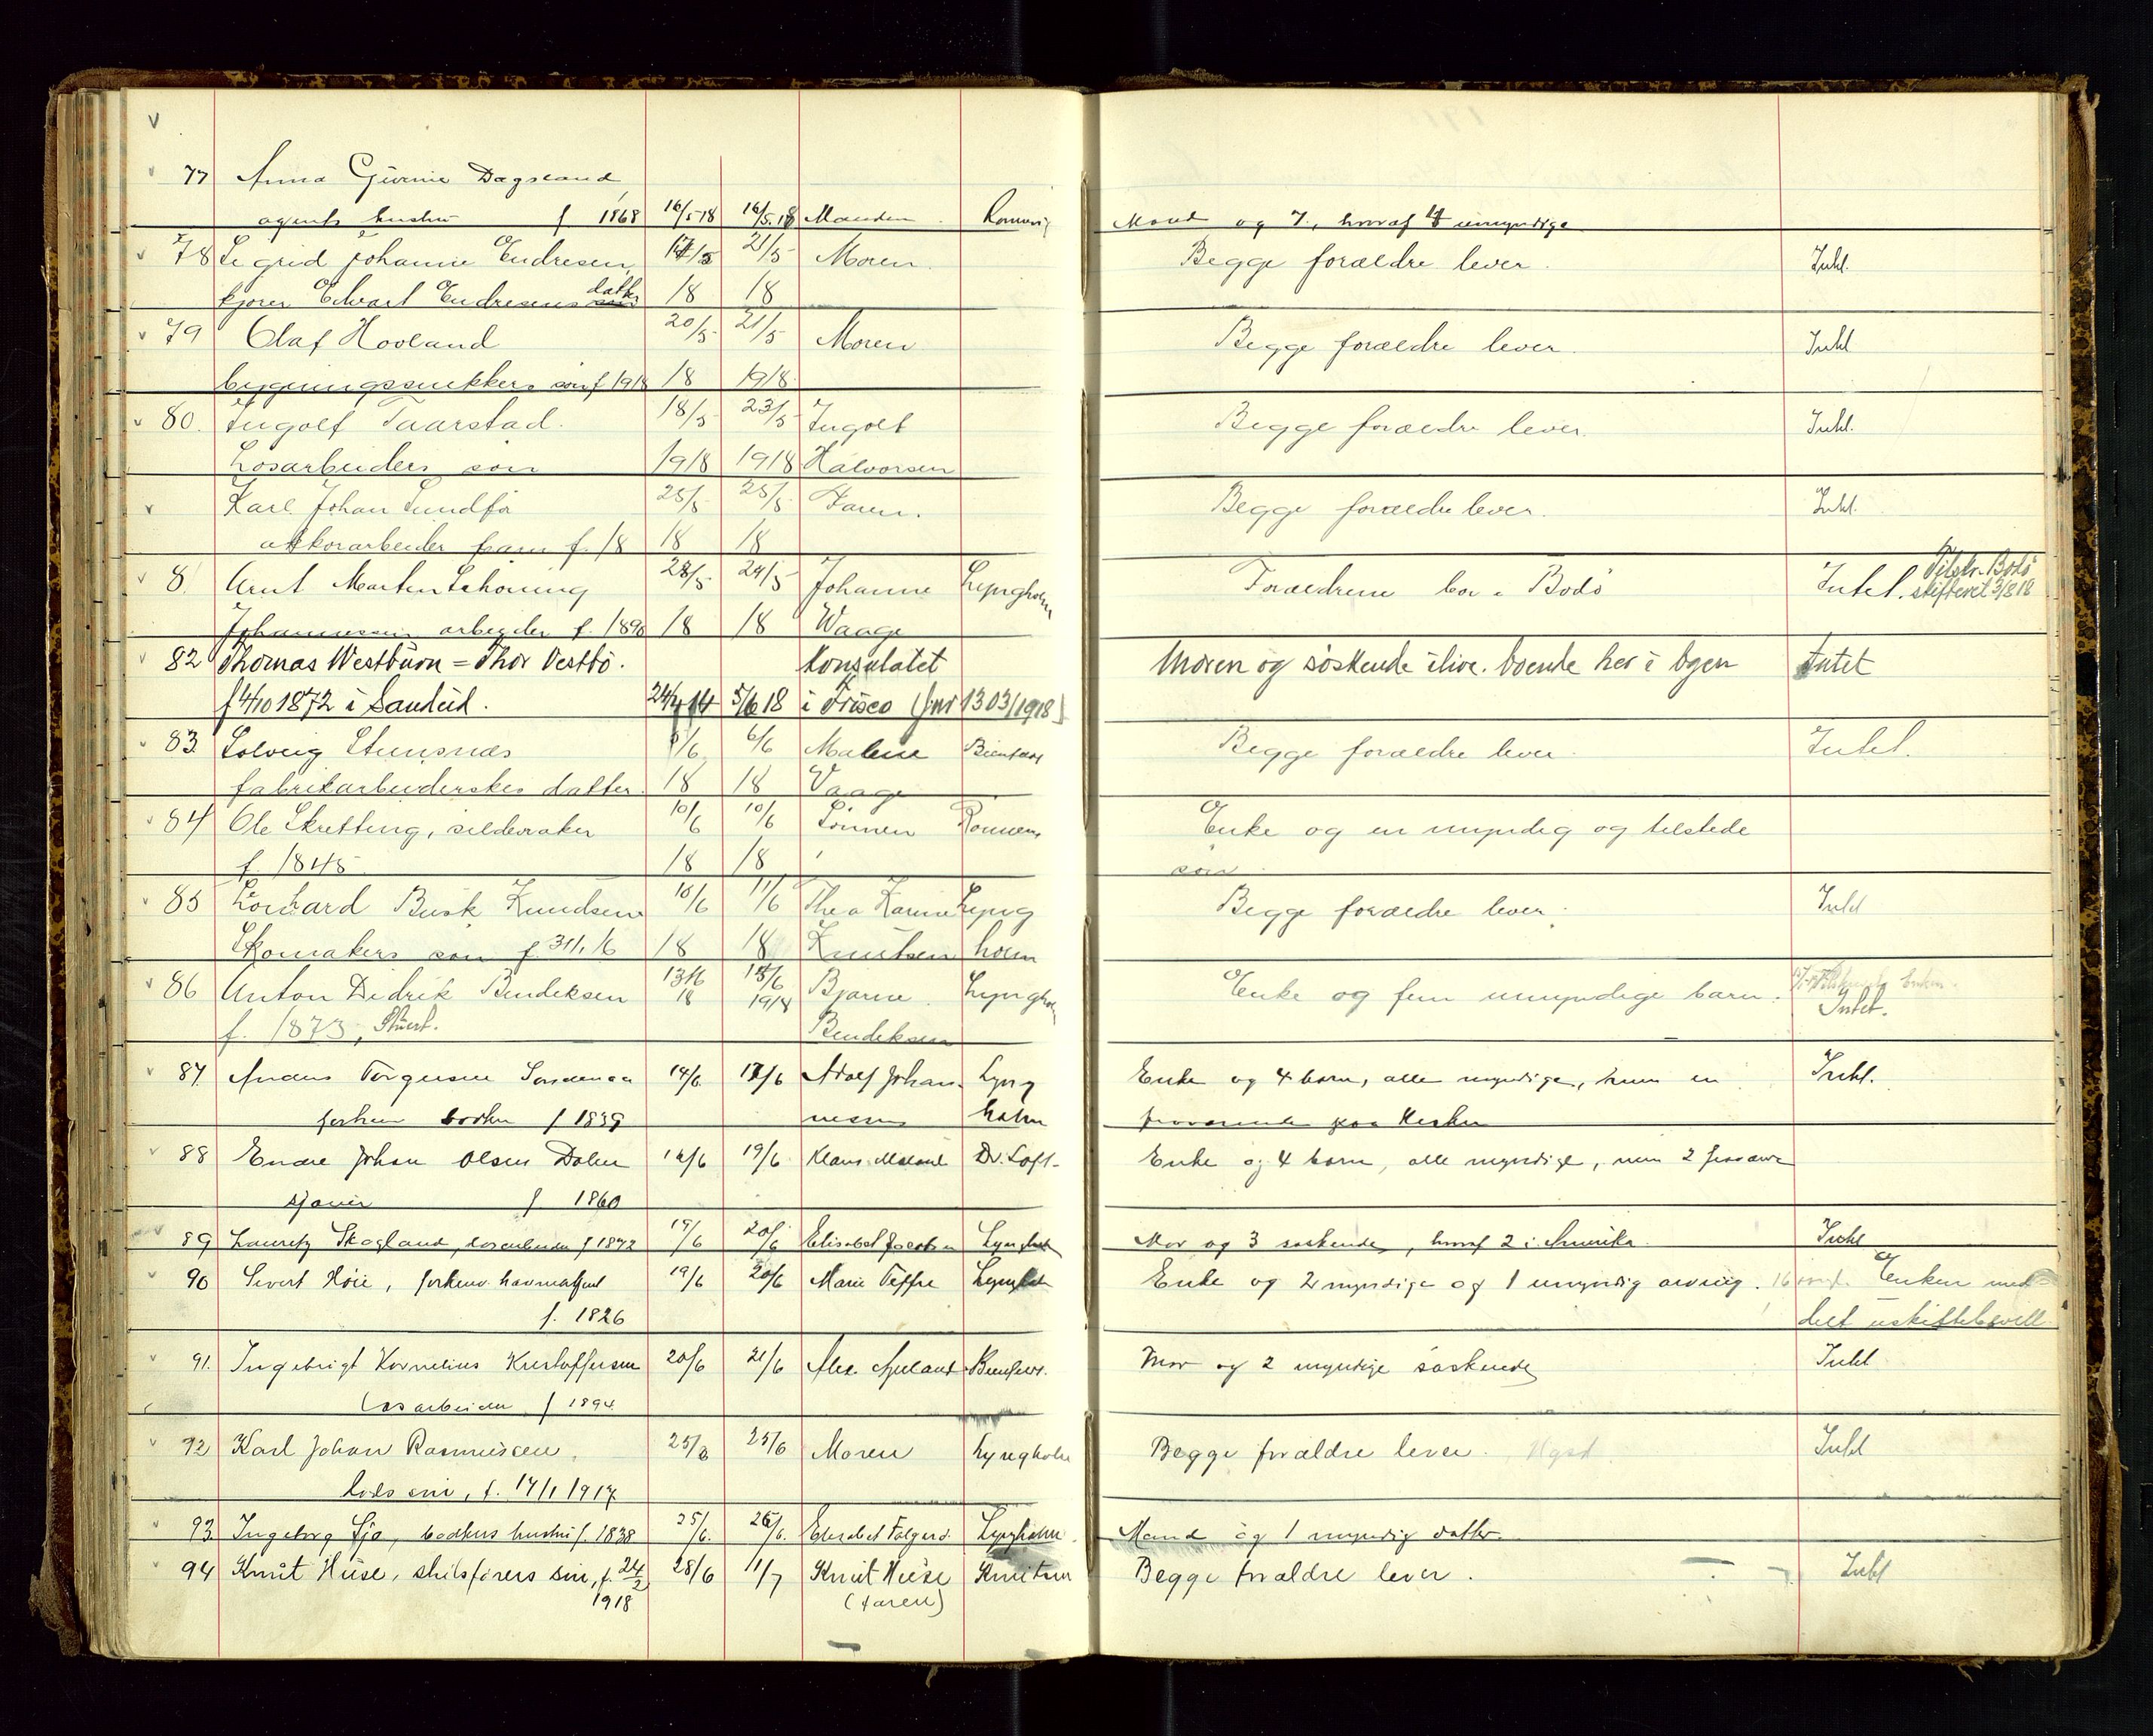 77 Anna Gurine Dagsland
agents hustru f 1868 16/5 18 16/5 18 Manden Mand og 7, hvoraf 4 umyndige
78 Sigrid Johanne Endresen 14/5 21/5 Moren Begge forældre lever. Intet.
kjører Edvart Endresens datter 18 18
79 Olaf Hovland 20/5 21/5 Moren Begge forældre lever. Intet
bygningssnekkers søn f 1918 18 1918
80. Ingolf Taarstad. 18/5 23/5 Ingolf Begge forældre lever. Intet.
Løsarbeiders søn 1918 1918 Halvorsen
Karl Johan Sundfør 25/5 25/5 Faren. Begge forældre lever. Intet.
akkorarbeider f. 18 18 18
8 Arnt Marten Schoning 28/5 29/5 Johanne Lyngholm Forældrene bor i Bodö Intet. Tilskr. Bodö
skifteret 3/8 18
Johannessen arbeider f. 1890 18 18 Waage
82 Thomas Westburn = Thor Vestbö. Konsulatet Moren og söskende ilive. boende her i byen Intet
f 4/10 1872 i Sandeid. 5/6 18 i Frisco (Jnr 1303/1918)
83 Solveig Stumsnæs 6/6 Malene Begge forældre lever. Intet.
fabrikarbeiderskes datter 18 18 Vaage
84 Ole Skretting, sildevraker 10/6 10/6 Sönnen Enke og en myndig og tilstede
f. 1845 18 18 søn
85 Lönhard Busk Knudsen 10/6 11/6 Thea Karine Lyng Begge forældre lever. Intet
Skomakers søn f. 31/1 16 18 18 Knutsen holm
86 Anton Didrik Bendiksen 13/6 18 15/6 1918 Bjarne Lyngholm Enke og fem umyndige barn.
Intet.
f. 1873, Stuert. Bendiksen
87. Anders Torgersen Sandanaa 14/6 17/6 Adolf Johan- Lyng Enke og 4 barn, alle myndige, Intet.
forhen bødker f 1839 nesen holm
88 Endre Johan Olsen Dalen 16/6 19/6 Klaus Dr. Loft- Enke og 4 barn, alle myndige, 2
sjauer f 1860
89 Lauritz Skogland, løsarbeider f 1872 19/6 20/6 Elisabet Jacobsen Lyngholm Mor og 3 søskende, hvoraf 2 i Amerika. Intet
90 Sivert Höie, forhenv. 19/6 20/6 Marie Lyngholm Enke og 2 myndige og 1 umyndig arving. Enken med-
f. 1826 delt uskiftebevill.
91. Ingebrigt Kornelius Kristoffersen 20/6 21/6 Alex. Mor og 2 myndige søskende Intet
Løsarbeider f 1894
92 Karl Johan Rasmussen, 25/6 25/6 Moren Lyngholm Begge forældre lever. Intet
lods søn, f. 17/1 1917
93 Ingeborg Sjø, bødkers hustru f. 1838 25/6. 26/6. Elisabet Lyngholm Mand og 1 myndig datter.
94 Knut Huse, skibsførers søn, f. 24/2 28/6 11/7 Knut Huse Knutsen Begge forældre lever. Intet
1918 (faren)